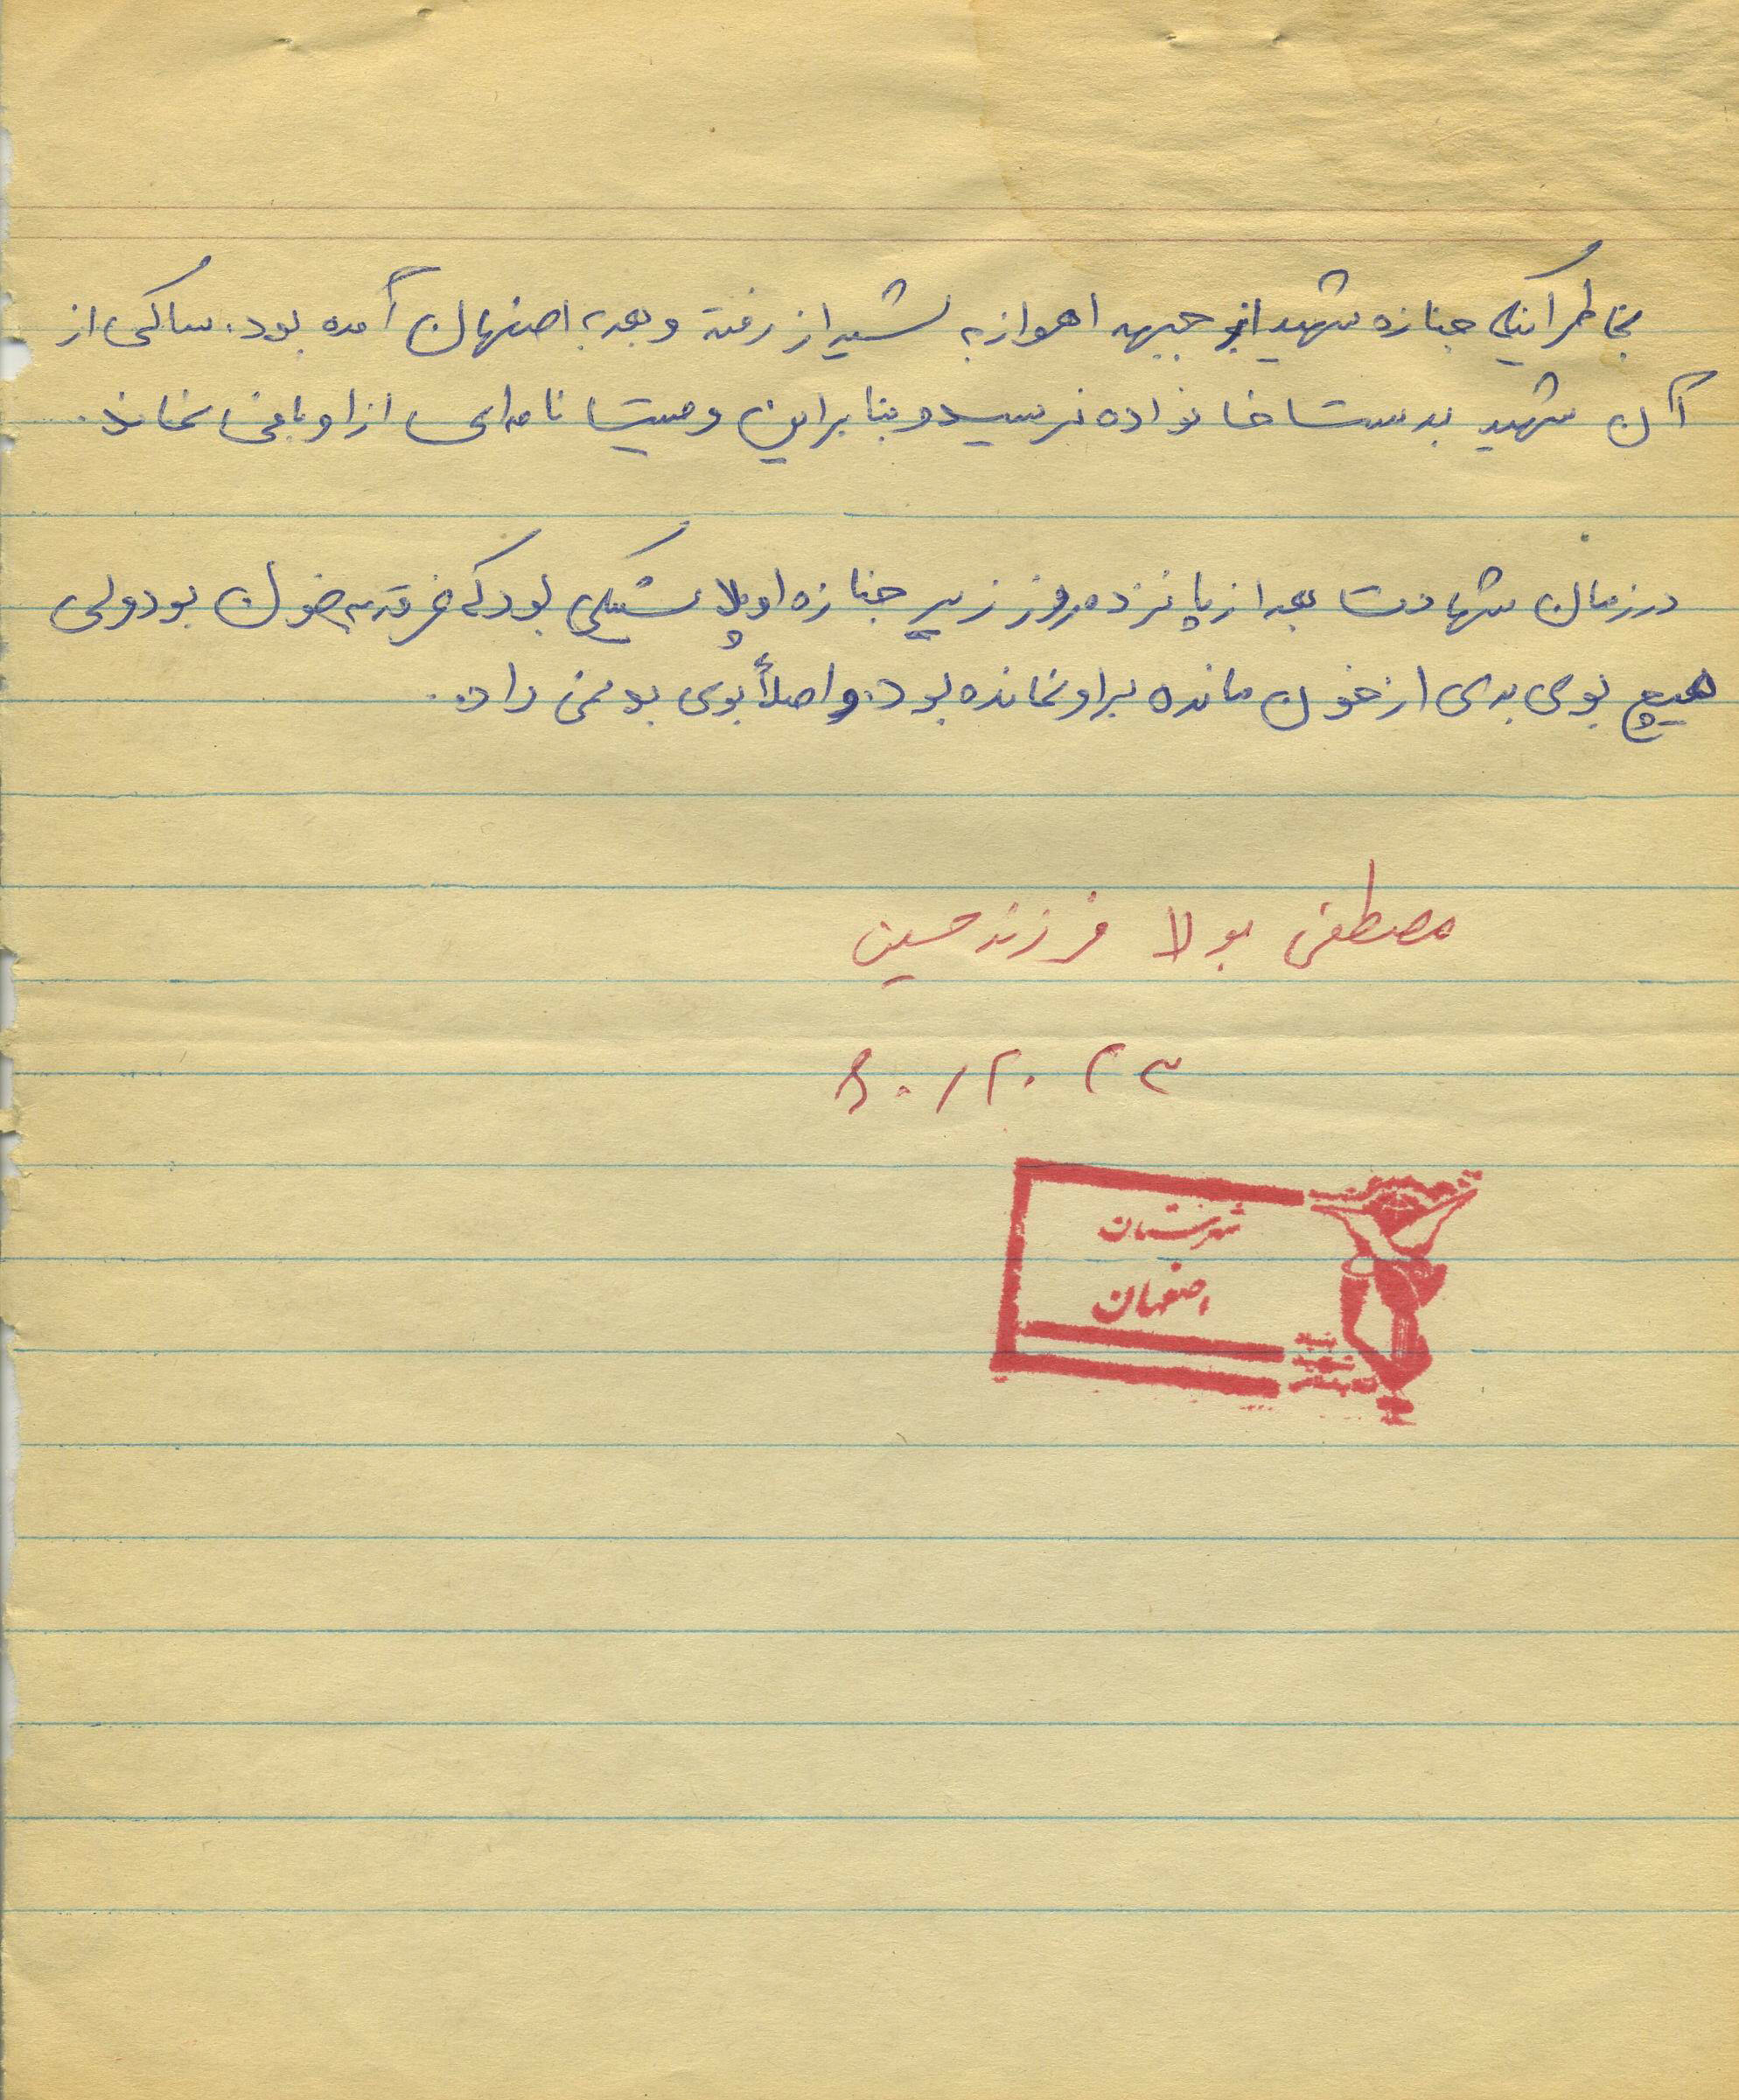 بخاطر اینکه جنازه شهید از جبهه اهواز به شیراز رفته و بعد به اصفهان آمده بود. ساکی از
آن شهید بدست خانواده نرسید و بنابراین وصیت نامه‌ای از او باقی نماند.
در زمان شهادت بعد از پانزده روز زیر جنازه او پلاستیکی بود که غرق به خون بود ولی
هیچ بوی بدی از خون مانده برا و نمانده بود. و اصلاً بوی بد نمی داد.
مصطفی بولا فرزند حسین
شهرستان
اصفهان
بنیاد
شهید